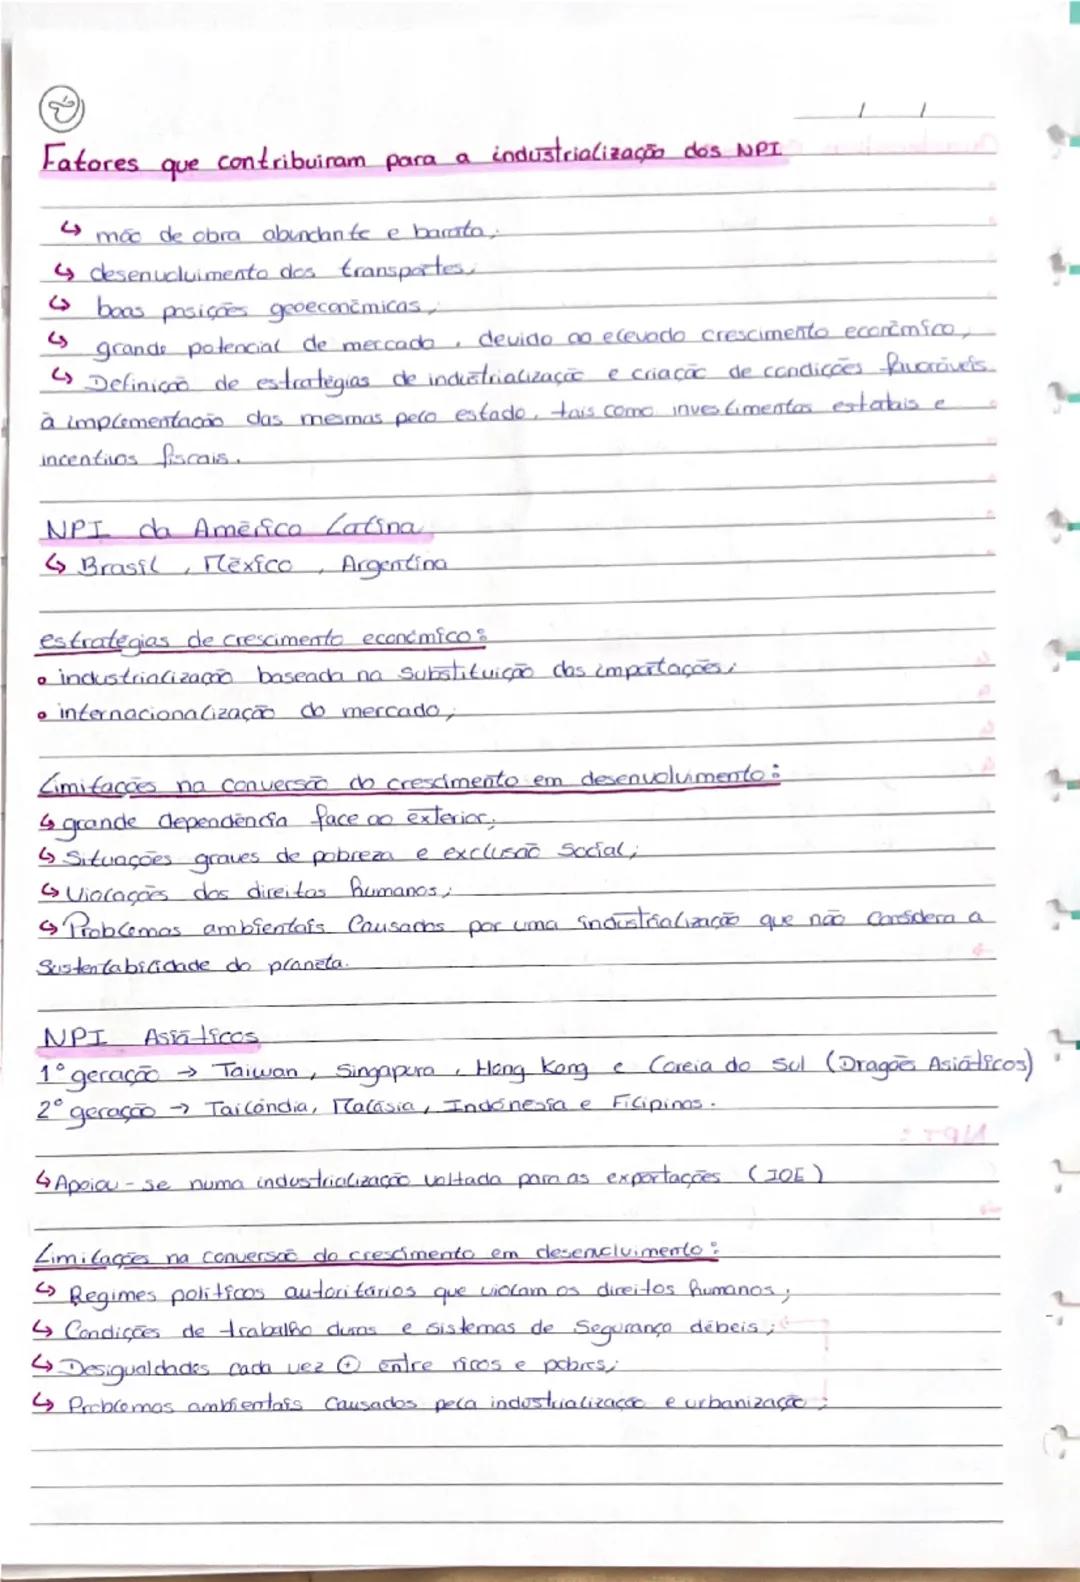 Fatores que contribuiram para a industrialização dos NPI
↳ mão de obra abundante e barata;
↳ desenvolvimento dos transportes;
↳ boas posições geoeconómicas;
↳ grande potencial de mercado, devido ao elevado crescimento económico,
↳ Definição de estratégias de industrialização e criação de condições favoráveis
à implementação das mesmas pelo estado, tais como investimentos estatais e
incentivos fiscais.
NPI da América Latina
↳ Brasil, México, Argentina
estratégias de crescimento económico:
• industrialização baseada na substituição das importações;
• internacionalização do mercado;
Limitações na conversão do crescimento em desenvolvimento:
↳ grande dependência face ao exterior;
↳ Situações graves de pobreza e exclusão social;
↳ Violações dos direitos humanos;
↳ Problemas ambientais causados por uma industrialização que não considera a
Sustentabilidade do planeta.
NPI Asiáticos
1º geração → Taiwan, Singapura, Hong Kong e Coreia do Sul (Dragões Asiáticos)
2º geração → Tailândia, Malásia, Indonésia e Filipinas.
↳ Apoiou-se numa industrialização voltada para as exportações (IOE)
Limitações na conversão do crescimento em desenvolvimento:
↳ Regimes políticos autoritários que violam os direitos humanos;
↳ Condições de trabalho duras e sistemas de Segurança débeis;
↳ Desigualdades cada vez ⊕ entre ricos e pobres;
↳ Problemas ambientais causados pela industrialização e urbanização;